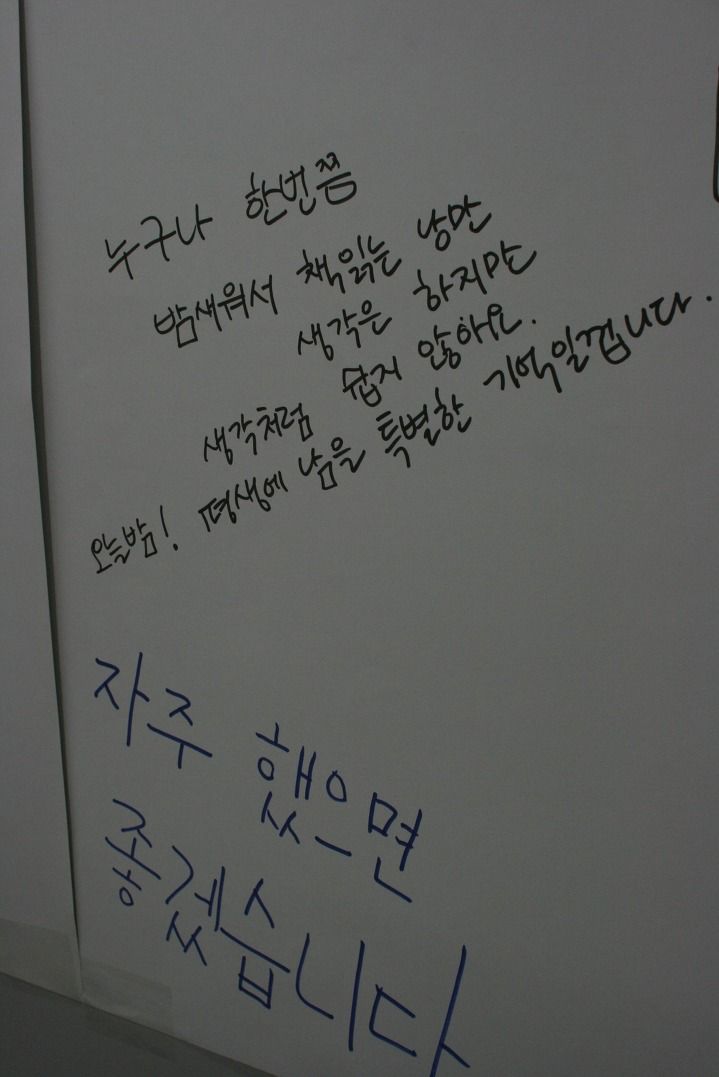 누구나 한번쯤
밤새워서 책읽는 낭만
생각은 하지만
생각처럼 쉽지 않아요.
오늘밤! 평생에 남을 특별한 기억일겁니다.
자주 했으면
좋겠습니다